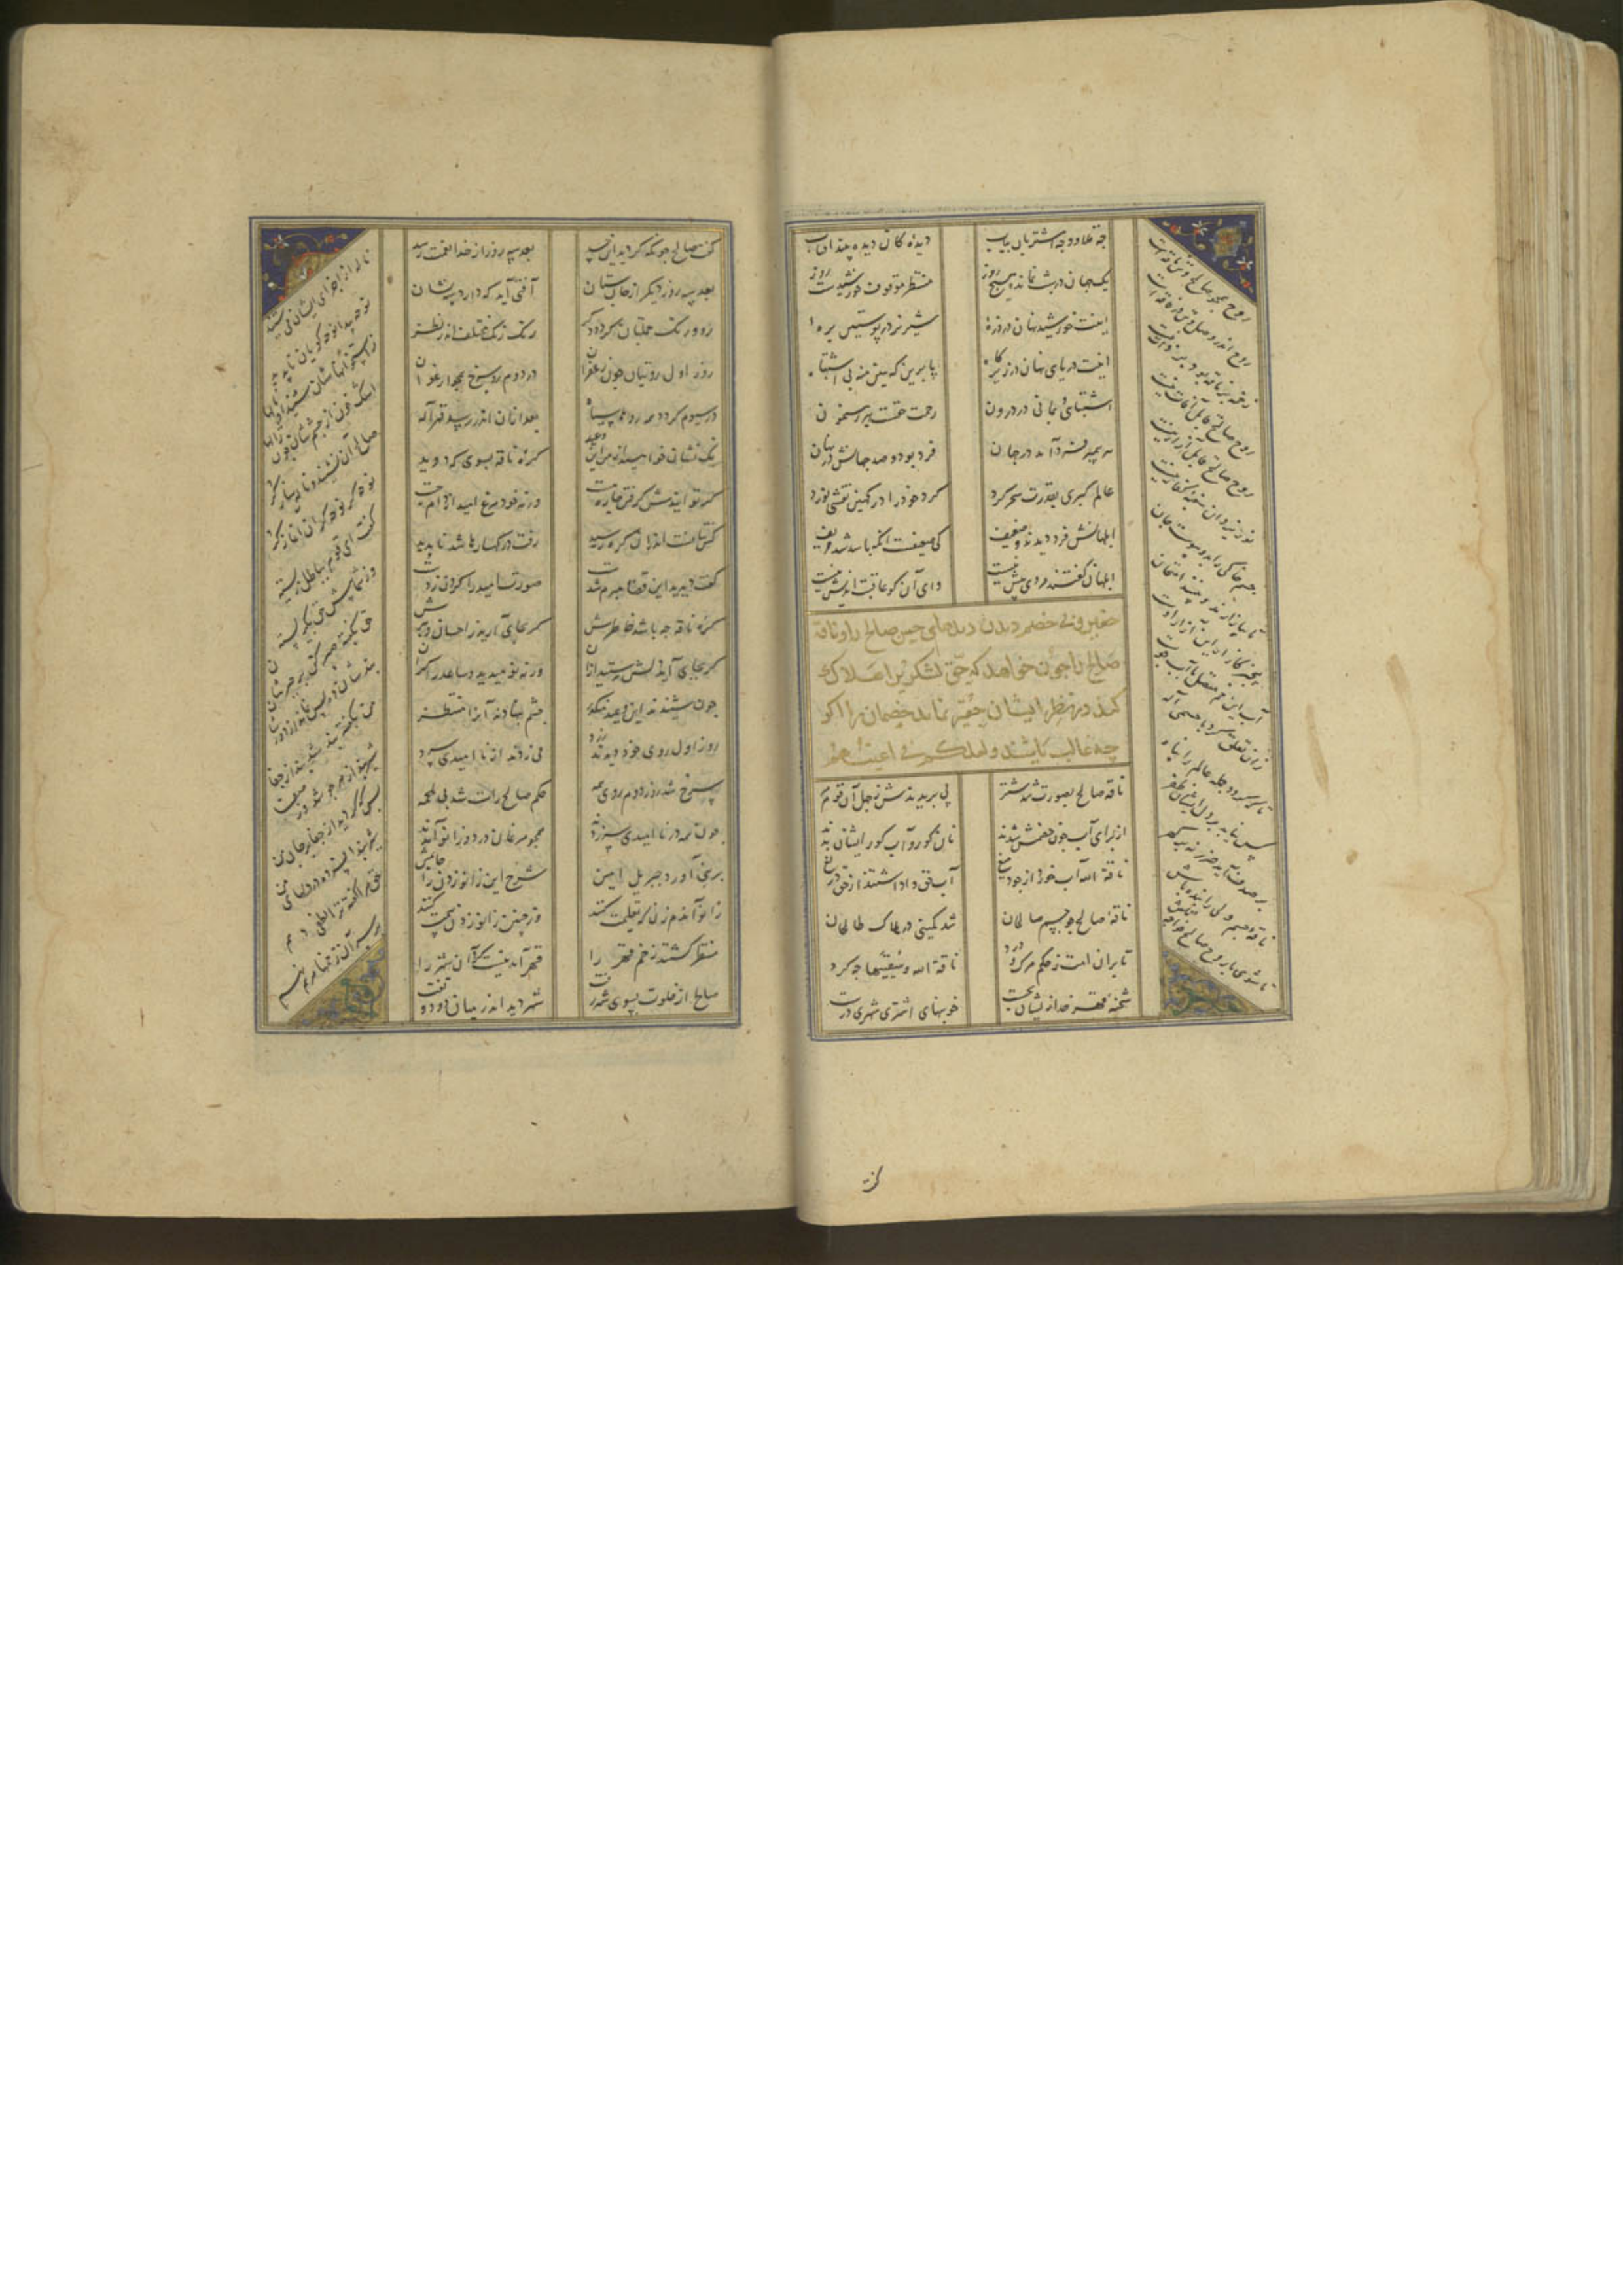 چه قلاوز چه اشتربان بیاب
دیده کان دیده بیند آفتاب
یک جهان در شب بمانده میخ روز
منتظر موقوف خورشیدست روز
اینت خورشید نهان در ذره
شیر نر در پوستین بره
اینت دریای نهان در زیر کاه
پا برین که هین منه بی اشتباه
اشتباهی و گمانی در درون
رحمت حقست بهر رهنمون
هر پیمبر فرد آمد در جهان
فرد بود و صد جهانش در نهان
عالم کبری بقدرت سحر کرد
کرد خود را در کهین نقشی نورد
ابلهانش فرد دیدند و ضعیف
کی ضعیفست آنکه با شه شد حریف
ابلهان گفتند مردی بیش نیست
وای آن کو عاقبت اندیش نیست
حقیر و بی خصم دیدن دیدهای حس صالح را و ناقه
صالح را چون خواهد که حق لشکری را هلاک
کند در نظر ایشان حقیر نماید خصمان را اگر
چه غالب باشند و یقللکم فی اعینهم
ناقه صالح بصورت شد شتر
پی بریدندش ز جهل آن قوم مر
از برای آب چون خصمش شدند
نان کور و آب کور ایشان بدند
ناقة الله آب خورد از جوی و میغ
آب حق را داشتند از حق دریغ
ناقه صالح چو جسم صالحان
شد کمینی در هلاک طالحان
تا بر آن امت ز حکم مرگ و درد
ناقة الله و سقیها چه کرد
شحنه قهر خدا زیشان بجست
خونبهای اشتری شهری درست
روح همچو صالح و تن ناقه است
روح اندر وصل و تن در فاقه است
زخم بر ناقه بود بر ذات نیست
روح صالح قابل آفات نیست
روح صالح قابل آزار نیست
نور یزدان سغبه کفار نیست
جسم خاکی را بدو پیوست جان
تا بیازارند و بینند امتحان
بیخبر کازار این آزار اوست
آب این خم متصل با آب جوست
زان تعلق کرد با جسمی اله
تا که گردد جمله عالم را پناه
کس نیابد بر دل ایشان ظفر
بر صدف آید ضرر نه بر گهر
ناقه جسم ولی را بنده باش
تا شوی با روح صالح خواجه تاش
گفت صالح چونکه کردید این حسد
بعد سه روز از خدا نقمت رسد
بعد سه روز دیگر از جان ستان
آفتی آید که دارد سه نشان
روی رنگ جملتان گردد دگر
رنگ رنگ مختلف اندر نظر
روز اول رویتان چون زعفران
در دوم رو سرخ همچو ارغوان
در سیوم گردد همه روها سیاه
بعد از آن اندر رسد قهر اله
گر نشان خواهید از من زین وعید
کره ناقه بسوی که دوید
گر توانیدش گرفتن چاره هست
ورنه خود مرغ امید از دام جست
کس نتانست اندر آن کره رسید
رفت در کهسارها شد ناپدید
گفت دیدید این قضا مبرم شدست
صورت امید را گردن زدست
کره ناقه چه باشد خاطرش
که بجای آرید ز احسان و برش
گر بجای آید دلش رستید از آن
ورنه نومیدید و ساعد را گزان
چون شنیدند این وعید منکدر
چشم بنهادند آن را منتظر
روز اول روی خود دیدند زرد
می زدند از ناامیدی آه سرد
سرخ شد روز دوم روی همه
حکم صالح راست شد بی ملحمه
چون همه در ناامیدی سر زدند
همچو مرغان در دو زانو آمدند
در نبی آورد جبریل امین
شرح این زانو زدن را جاثمین
زانو آن دم زن که تعلیمت کنند
وز چنین زانو زدن بیمت کنند
منتظر گشتند زخم قهر را
قهر آمد نیست کرد آن شهر را
صالح از خلوت بسوی شهر رفت
شهر دید اندر میان دود و تفت
ناله از اجزای ایشان می شنید
نوحه پیدا نوحه گویان ناپدید
ز استخوانهاشان شنید او نالها
اشک خون از جسمشان چون ژالها
صالح آن بشنید و گریه ساز کرد
نوحه بر نوحه گران آغاز کرد
گفت ای قوم بباطل زیسته
وز شما من پیش حق بگریسته
حق بگفته صبر کن بر جورشان
پندشان ده بس نماند از دورشان
من بگفته پند شد بند از جفا
شیر پند از مهر جوشد وز صفا
بس که کردید از جفا بر جای من
شیر پند افسرد در رگهای من
حق مرا گفته ترا لطفی دهم
بر سر آن زخمها مرهم نهم